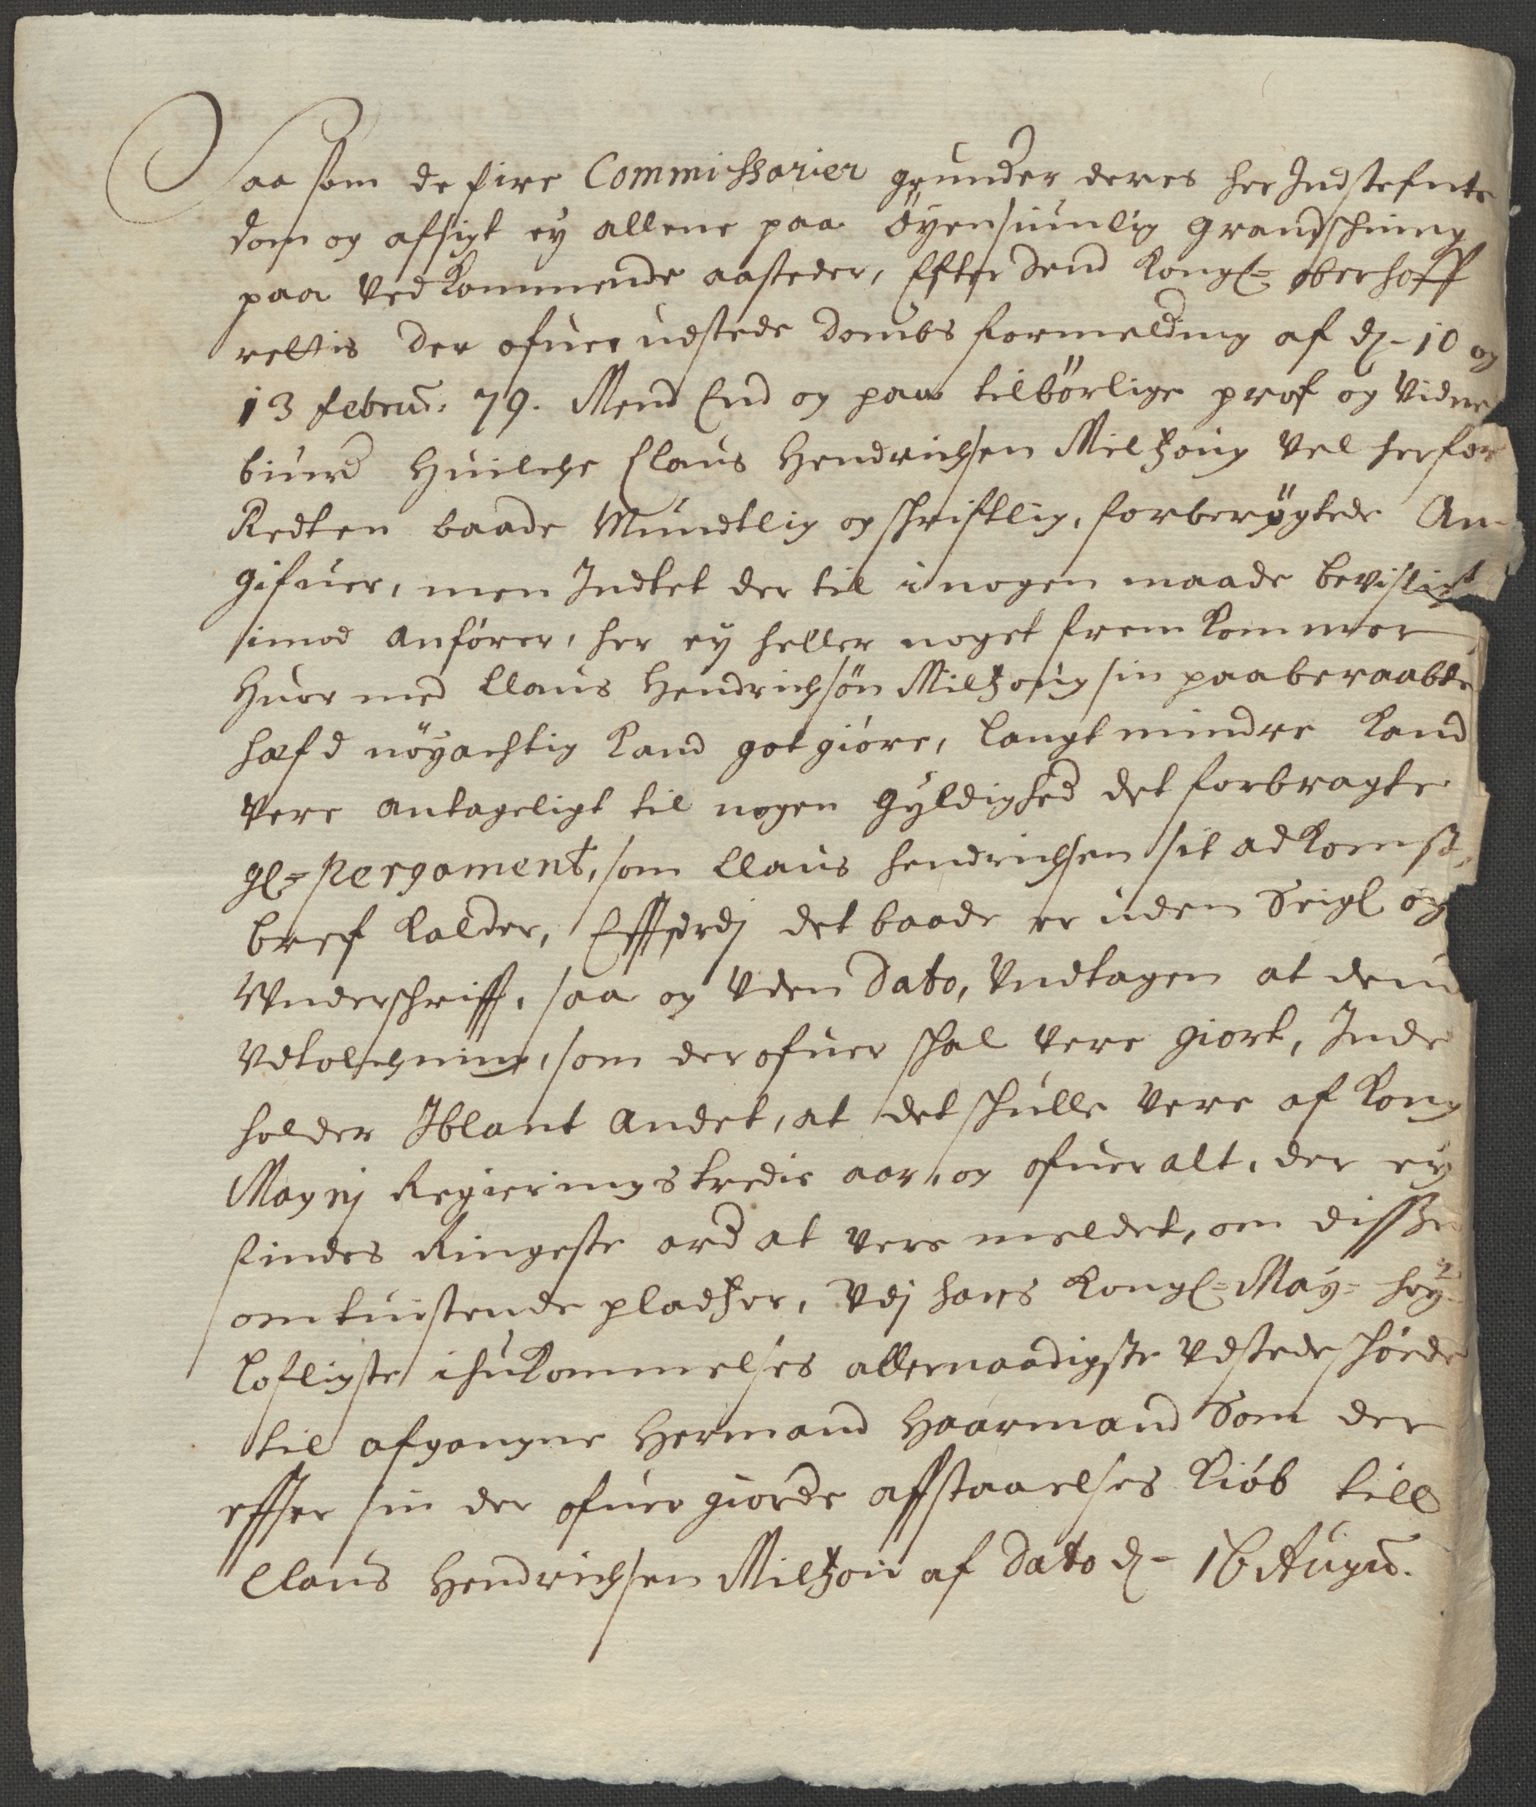 Saasom de fire Commissarier grunder deres her Indstefnte
dom og afsigt ey allene paa öyensiunlig grandschning
paa vedkommende aasteder, Efter dend Kongl: oberhoff
rettis der ofuer udstede dombs formelding af d: 10 og
13 febru: 79. Mend End og paa tilbörlige prof og vidne
biurd Huilche Claus Hendrichsen Miltzoug vel herfor
Retten baade Mundtlig og schriftlig, forberögtede An-
gifuer, men Indtet der til i nogen maade bevisligt
imod anförer, her ey heller noget fremkommer
Huor med Claus Hendrichsön Miltzoug sin paaberaabte
hæfd nöyachtig kand gotgiöre, langt mindre kand
vere antageligt til nogen gyldighed det forbragte
gl: Pergament, som Claus Hendrichsen sit adkomst
bref kalder, Effterdj det baade er uden Seigl og
Vnderschrifft, saa og vden Dato, vndtagen at denn
vdtolchning, som der ofuer schal vere giort, Inde
holder Iblant andet, at det schulle vere af Kong
Magnj Regierings tredie aar, og ofueralt, der ey
findes Ringeste ord at vere meldet, om disse
omtuistende pladtzer, vdj hans Kongl: May: höy
lofligste ihukommelses allernaadigste vdstede schiöede
til afgangne Hermand Haarmand Som der
effter sin der ofuer giorde afstaaelses Kiöb till
Claus Hendrichsen Miltzou af Dato d: 16 Augu: